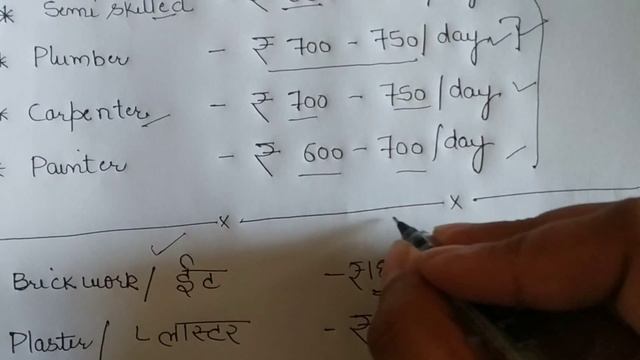 * Semi skilled
* Plumber - ₹ 700 - 750/day
* Carpenter - ₹ 700 - 750/day
* Painter - ₹ 600 - 700/day
x x
Brickwork/ ईट - ₹
Plaster/ प्लास्टर - ₹